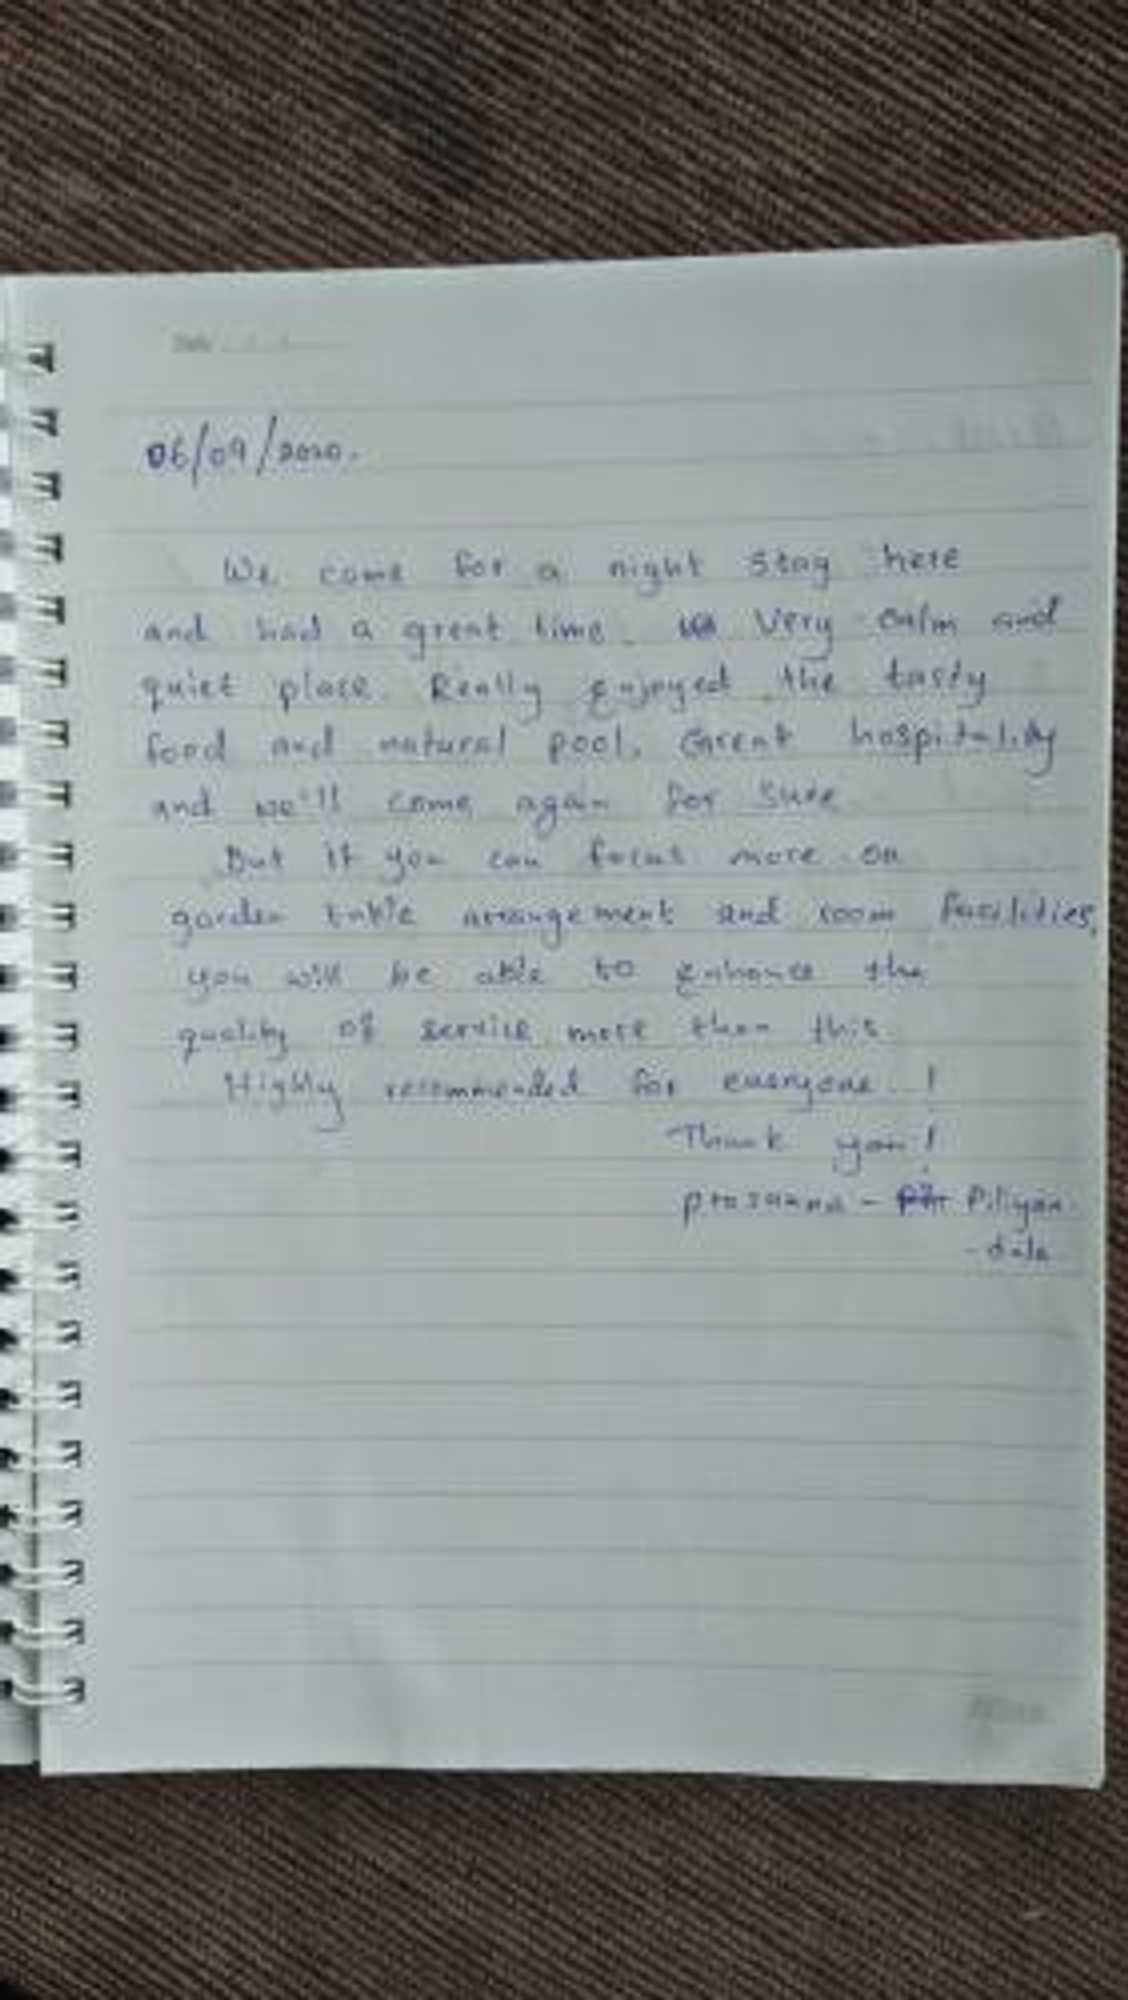 Date
06/09/2020.
We come for a night stay here
and had a great time. Very calm and
quiet place. Really enjoyed the tasty
food and natural pool. Great hospitality
and we'll come again for sure
But if you can focus more on
garden table arrangement and room facilities,
you will be able to enhance the
quality of service more than this
Highly recommended for everyone..!
Thank you!
prasanna - Piliyan
- dala